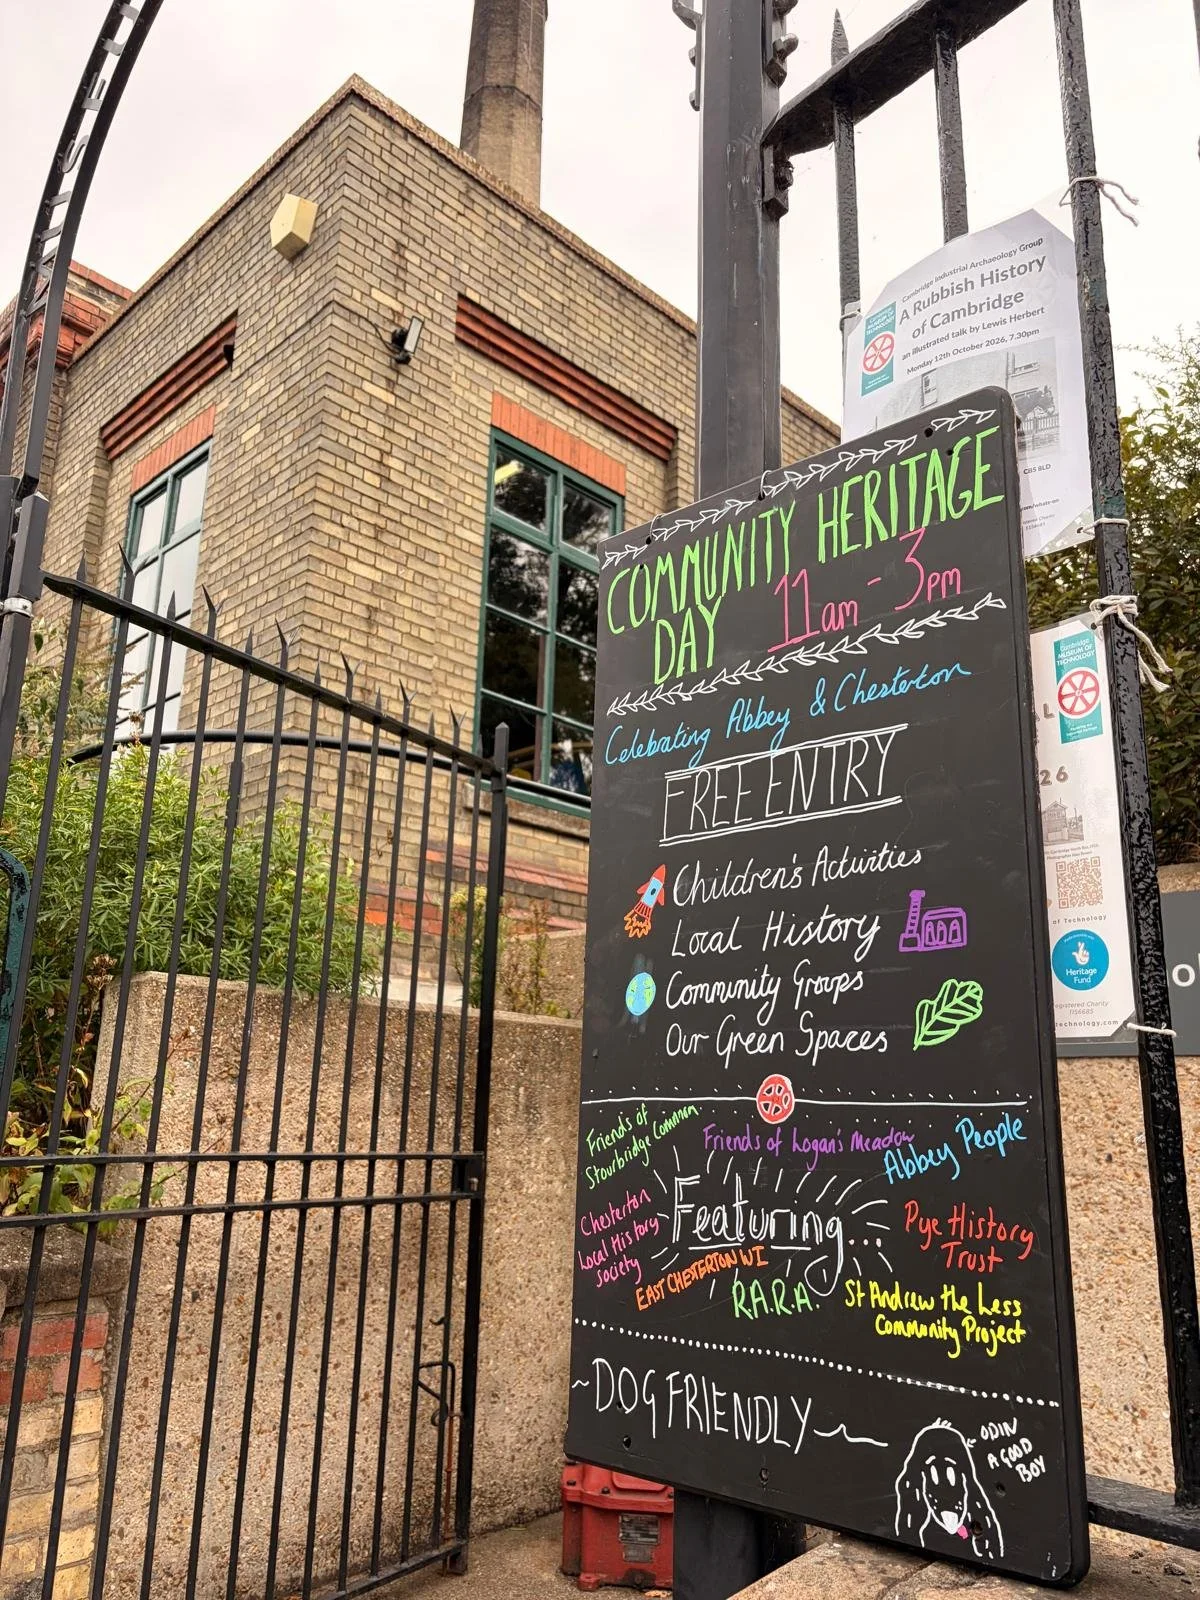 Cambridge Industrial Archaeology Group
A Rubbish History
of Cambridge
an illustrated talk by Lewis Herbert
Monday 12th October 2026, 7.30pm
Cambridge
MUSEUM OF
TECHNOLOGY
CB5 8LD
COMMUNITY HERITAGE
DAY 11am - 3pm
Celebrating Abbey & Chesterton
FREE ENTRY
Children's Activities
Local History
Community Groups
Our Green Spaces
Friends of
Stourbridge Common
Friends of Logan's Meadow
Abbey People
Chesterton
Local History
Society
Featuring...
Pye History
Trust
EAST CHESTERTON WI
R.A.R.A.
St Andrew the Less
Community Project
~DOG FRIENDLY~
ODIN
A GOOD
BOY
Cambridge
MUSEUM OF
TECHNOLOGY
26
of Technology
Heritage
Fund
Registered Charity
1156685
technology.com